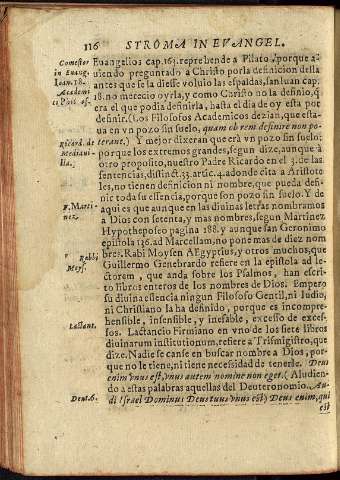 116 STROMA IN EVANGEL.
Comestor
in Euang.
Ioan. 18.
Academi
ci Phil.
Euangelios cap. 163. reprehende a Pilato, porque a-
uiendo preguntado a Christo por la definicion della
antes que se la diesse voluio las espaldas, san Iuan cap.
18. no merecio oyrla, y como Christo no la definio, q
era el que podia definirla, hasta el dia de oy esta por
definir. (Los Filosofos Academicos dezian, que esta-
ua en vn pozo sin suelo, quam ob rem definire non po-
Ricard. de
Mediaui-
lla.
terant.) Y mejor dixeran que era vn pozo sin suelo:
porque los extremos grandes, segun dize, aunque a
otro proposito, nuestro Padre Ricardo en el 3. de las
sentencias, distinct. 33. artic. 4. adonde cita a Aristote
les, no tienen definicion ni nombre, que pueda defi-
nir toda su essencia, porque son pozo sin suelo. Y de
F. Marti-
nez.
aqui es que aunque en las diuinas letras nombramos
a Dios con setenta, y mas nombres, segun Martinez
Hypotheposeo pagina 188. y aunque san Geronimo
epistola 136. ad Marcellam, no pone mas de diez nom
Rabbi
Moys.
bres. Rabi Moysen AEgyptius, y otros muchos, que
Guillermo Genebrardo refiere en la epistola ad le-
ctorem, que anda sobre los Psalmos, han escri-
to libros enteros de los nombres de Dios. Empero
su diuina essencia ningun Filosofo Gentil, ni Iudio,
ni Christiano la ha definido, porque es incompre-
hensible, insensible, y inefable, excesso de exces-
Lactant.
sos. Lactancio Firmiano en vno de los siete libros
diuinarum institutionum, refiere a Trismigistro, que
dize. Nadie se canse en buscar nombre a Dios, por-
que no le tiene, ni tiene necessidad de tenerle. Deus
enim vnus est, vnus autem nomine non eget. (Aludien-
do a estas palabras aquellas del Deuteronomio. Au-
Deut. 6.
di Israel Dominus Deus tuus vnus est) Deus enim, qui
est